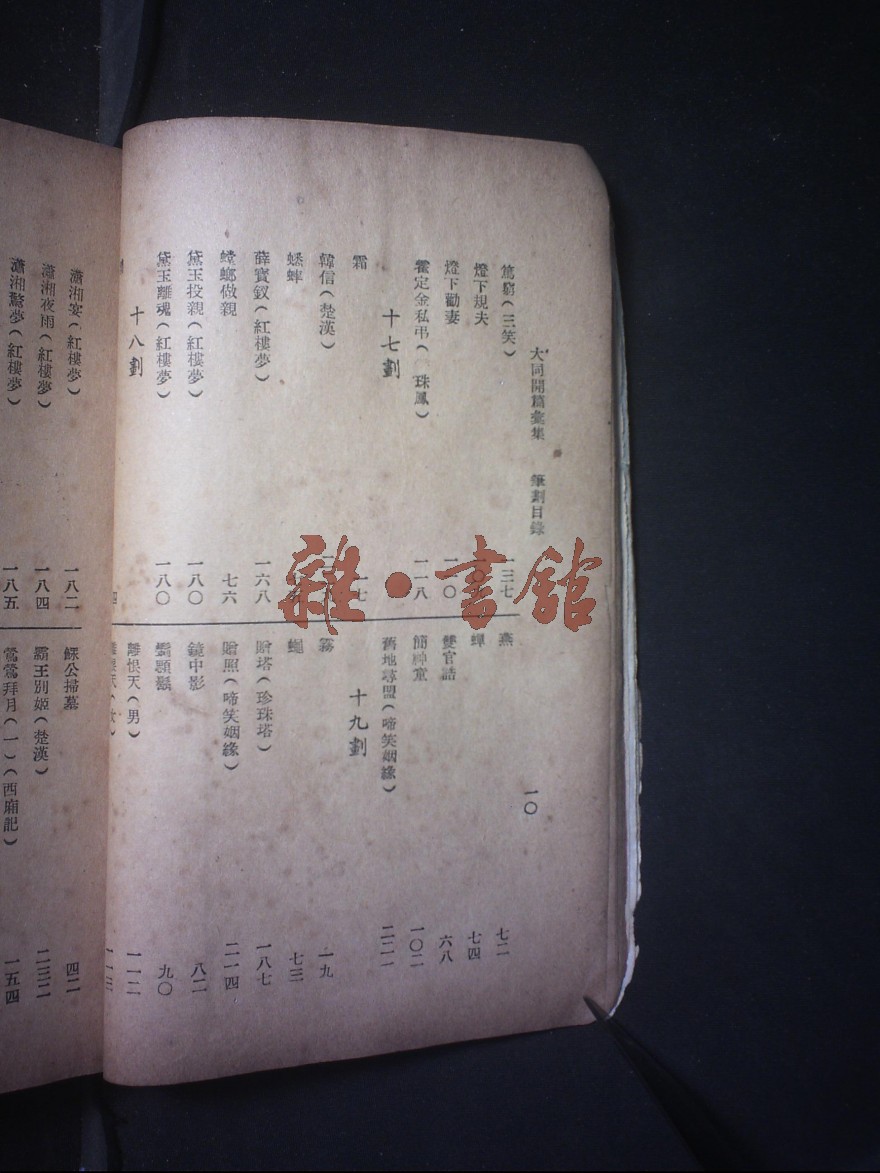 大同開篇彙集　筆劃目錄
一〇
罵窮(三笑)　一三七
燈下規夫
燈下勸妻
霍定金私弔(珠鳳)　一一八
十七劃
霜　一七
韓信(楚漢)
蟋蟀
薛寶釵(紅樓夢)　一六八
螳螂做親　七六
黛玉投親(紅樓夢)　一八〇
黛玉離魂(紅樓夢)　一八〇
十八劃
燕　七二
蟬　七四
雙官誥　六八
簡神童　一〇二
舊地尋盟(啼笑姻緣)　二二一
十九劃
霧　一九
蠅　七三
贈塔(珍珠塔)　一八七
贈照(啼笑姻緣)　二一四
鏡中影　八二
九〇
離恨天(男)　一一二
一一三
瀟湘宴(紅樓夢)　一八二
瀟湘夜雨(紅樓夢)　一八四
瀟湘驚夢(紅樓夢)　一八五
蘇公掃墓　四二
霸王別姬(楚漢)　二三二
鶯鶯拜月(一)(西廂記)　一五四
雜·書館